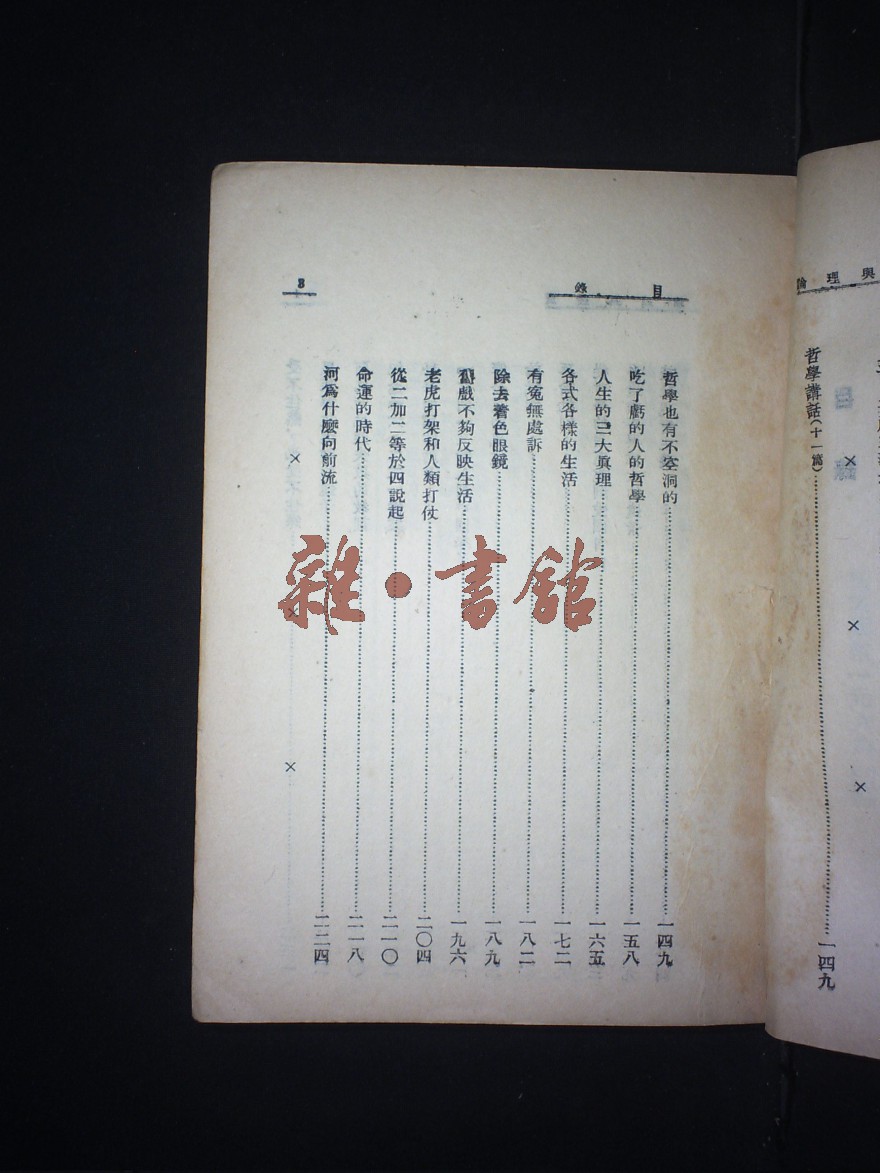 論理與
哲學講話(十一篇)⋯⋯一四九
目錄
3
哲學也有不空洞的⋯⋯一四九
吃了虧的人的哲學⋯⋯一五八
人生的三大眞理⋯⋯一六五
各式各樣的生活⋯⋯一七二
有冤無處訴⋯⋯一八二
除去着色眼鏡⋯⋯一八九
舊戲不夠反映生活⋯⋯一九六
老虎打架和人類打仗⋯⋯二〇四
從二加二等於四說起⋯⋯二一〇
命運的時代⋯⋯二一八
河爲什麼向前流⋯⋯二二四
× × ×
× × ×
雜·書館